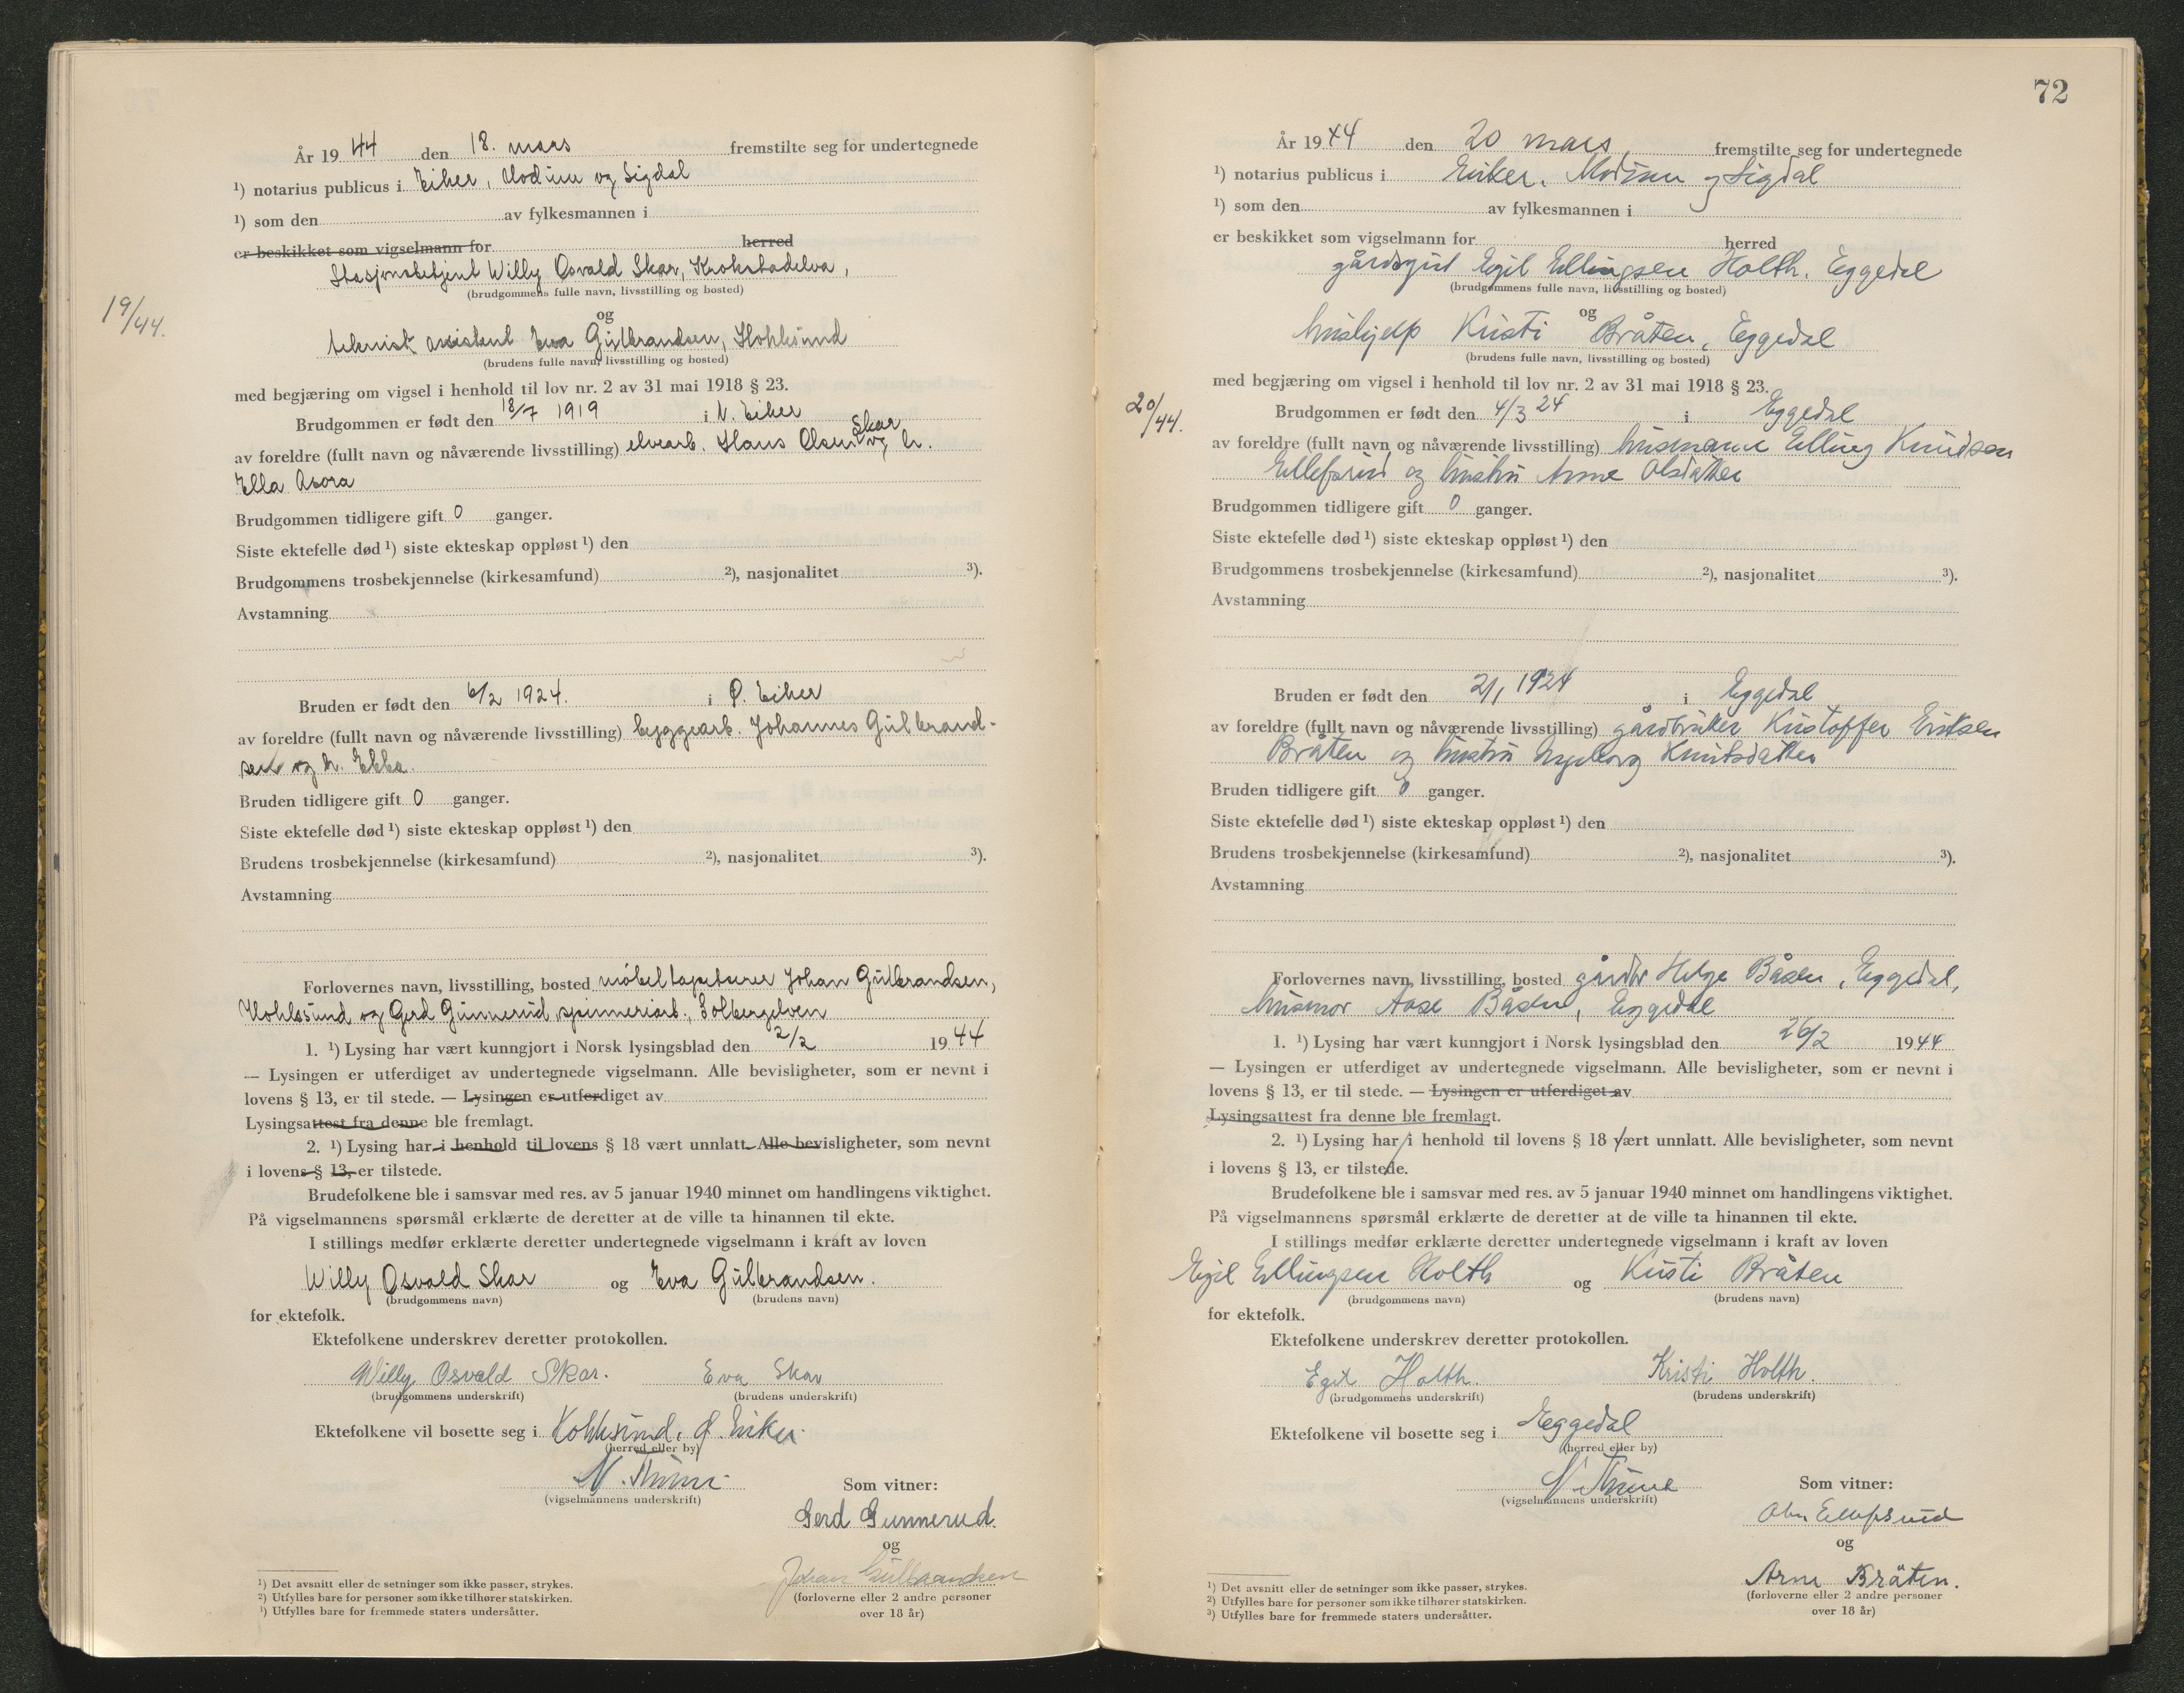 År 1944 den 18. mars fremstilte seg for undertegnede
¹) notarius publicus i Eiker, Modum og Sigdal
¹) som den av fylkesmannen i
er beskikket som vigselmann for herred
Stasjonsbetjent Willy Osvald Skar, Krokstadelva,
(brudgommens fulle navn, livsstilling og bosted)
19/44.
og
teknisk assistent Eva Gulbrandsen, Hokksund
(brudens fulle navn, livsstilling og bosted)
med begjæring om vigsel i henhold til lov nr. 2 av 31 mai 1918 § 23.
Brudgommen er født den 18/7 1919 i N. Eiker
av foreldre (fullt navn og nåværende livsstilling) elvearb. Hans Olsen Skar og h.
Ella Asora
Brudgommen tidligere gift 0 ganger.
Siste ektefelle død ¹) siste ekteskap oppløst ¹) den
Brudgommens trosbekjennelse (kirkesamfund) ²), nasjonalitet ³).
Avstamning
Bruden er født den 6/2 1924. i Ø. Eiker
av foreldre (fullt navn og nåværende livsstilling) byggearb. Johannes Gulbrand-
sen og h. Ebba.
Bruden tidligere gift 0 ganger.
Siste ektefelle død ¹) siste ekteskap oppløst ¹) den
Brudens trosbekjennelse (kirkesamfund) ²), nasjonalitet ³).
Avstamning
Forlovernes navn, livsstilling, bosted møbeltapetserer Johan Gulbrandsen,
Hokksund og Gerd Gunnerud, spinneriarb., Solbergelven
1. ¹) Lysing har vært kunngjort i Norsk lysingsblad den 2/2 1944
— Lysingen er utferdiget av undertegnede vigselmann. Alle bevisligheter, som er nevnt i
lovens § 13, er til stede. — Lysingen er utferdiget av
Lysingsattest fra denne ble fremlagt.
2. ¹) Lysing har i henhold til lovens § 18 vært unnlatt. Alle bevisligheter, som nevnt
i lovens § 13, er tilstede.
Brudefolkene ble i samsvar med res. av 5 januar 1940 minnet om handlingens viktighet.
På vigselmannens spørsmål erklærte de deretter at de ville ta hinannen til ekte.
I stillings medfør erklærte deretter undertegnede vigselmann i kraft av loven
Willy Osvald Skar og Eva Gulbrandsen.
(brudgommens navn) (brudens navn)
for ektefolk.
Ektefolkene underskrev deretter protokollen.
Willy Osvald Skar. Eva Skar
(brudgommens underskrift) (brudens underskrift)
Ektefolkene vil bosette seg i Hokksund, Ø. Eiker.
(herred eller by)
N. Thune
(vigselmannens underskrift)
Som vitner:
Gerd Gunnerud.
og
Johan Gulbrandsen
(forloverne eller 2 andre personer
over 18 år)
¹) Det avsnitt eller de setninger som ikke passer, strykes.
²) Utfylles bare for personer som ikke tilhører statskirken.
¹) Utfylles bare for fremmede staters undersåtter.
72
År 1944 den 20 mars fremstilte seg for undertegnede
¹) notarius publicus i Eiker, Modum og Sigdal
¹) som den av fylkesmannen i
er beskikket som vigselmann for herred
gårdsgut Egil Ellingsen Holth, Eggedal
(brudgommens fulle navn, livsstilling og bosted)
og
hushjelp Kristi Bråten, Eggedal
(brudens fulle navn, livsstilling og bosted)
med begjæring om vigsel i henhold til lov nr. 2 av 31 mai 1918 § 23.
20/44.
Brudgommen er født den 4/3 24 i Eggedal
av foreldre (fullt navn og nåværende livsstilling) husmann Elling Knudsen
Ellefsrud og hustru Anne Olsdatter
Brudgommen tidligere gift 0 ganger.
Siste ektefelle død ¹) siste ekteskap oppløst ¹) den
Brudgommens trosbekjennelse (kirkesamfund) ²), nasjonalitet ³).
Avstamning
Bruden er født den 2/1 1924 i Eggedal
av foreldre (fullt navn og nåværende livsstilling) gårdbruker Kristoffer Eriksen
Bråten og hustru Ingeborg Knutsdatter
Bruden tidligere gift 0 ganger.
Siste ektefelle død ¹) siste ekteskap oppløst ¹) den
Brudens trosbekjennelse (kirkesamfund) ²), nasjonalitet ³).
Avstamning
Forlovernes navn, livsstilling, bosted gårdbr Helge Båsen, Eggedal,
husmor Aase Båsen, Eggedal
1. ¹) Lysing har vært kunngjort i Norsk lysingsblad den 26/2 1944
— Lysingen er utferdiget av undertegnede vigselmann. Alle bevisligheter, som er nevnt i
lovens § 13, er til stede. — Lysingen er utferdiget av
Lysingsattest fra denne ble fremlagt.
2. ¹) Lysing har i henhold til lovens § 18 vært unnlatt. Alle bevisligheter, som nevnt
i lovens § 13, er tilstede.
Brudefolkene ble i samsvar med res. av 5 januar 1940 minnet om handlingens viktighet.
På vigselmannens spørsmål erklærte de deretter at de ville ta hinannen til ekte.
I stillings medfør erklærte deretter undertegnede vigselmann i kraft av loven
Egil Ellingsen Holth og Kristi Bråten
(brudgommens navn) (brudens navn)
for ektefolk.
Ektefolkene underskrev deretter protokollen.
Egil Holth. Kristi Holth.
(brudgommens underskrift) (brudens underskrift)
Ektefolkene vil bosette seg i Eggedal
(herred eller by)
N. Thune
(vigselmannens underskrift)
Som vitner:
Ellefsrud
og
Arne Bråten.
(forloverne eller 2 andre personer
over 18 år)
¹) Det avsnitt eller de setninger som ikke passer, strykes.
²) Utfylles bare for personer som ikke tilhører statskirken.
³) Utfylles bare for fremmede staters undersåtter.